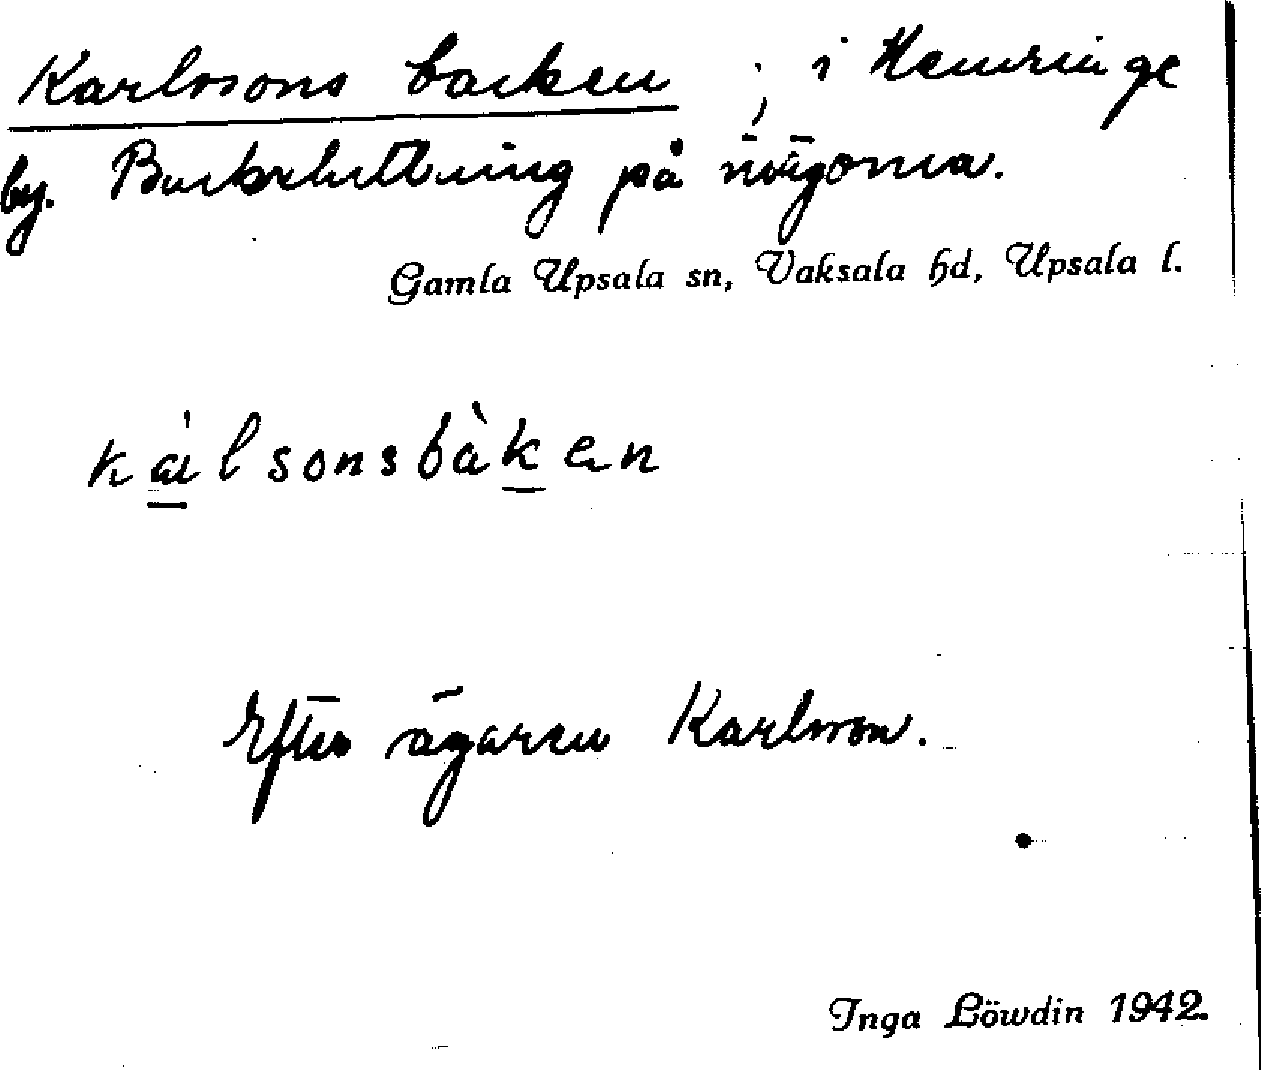 Karlssons backen ; i Hemringe
by. Backsluttning på ägorna.
Gamla Upsala sn, Vaksala hd, Upsala l.
kálsonsbàken
Efter ägaren Karlsson.
Inga Löwdin 1942.